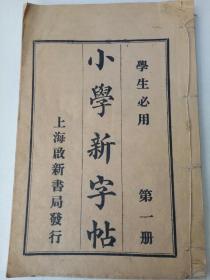 學生必用
第一册
小學新字帖
上海啟新書局發行